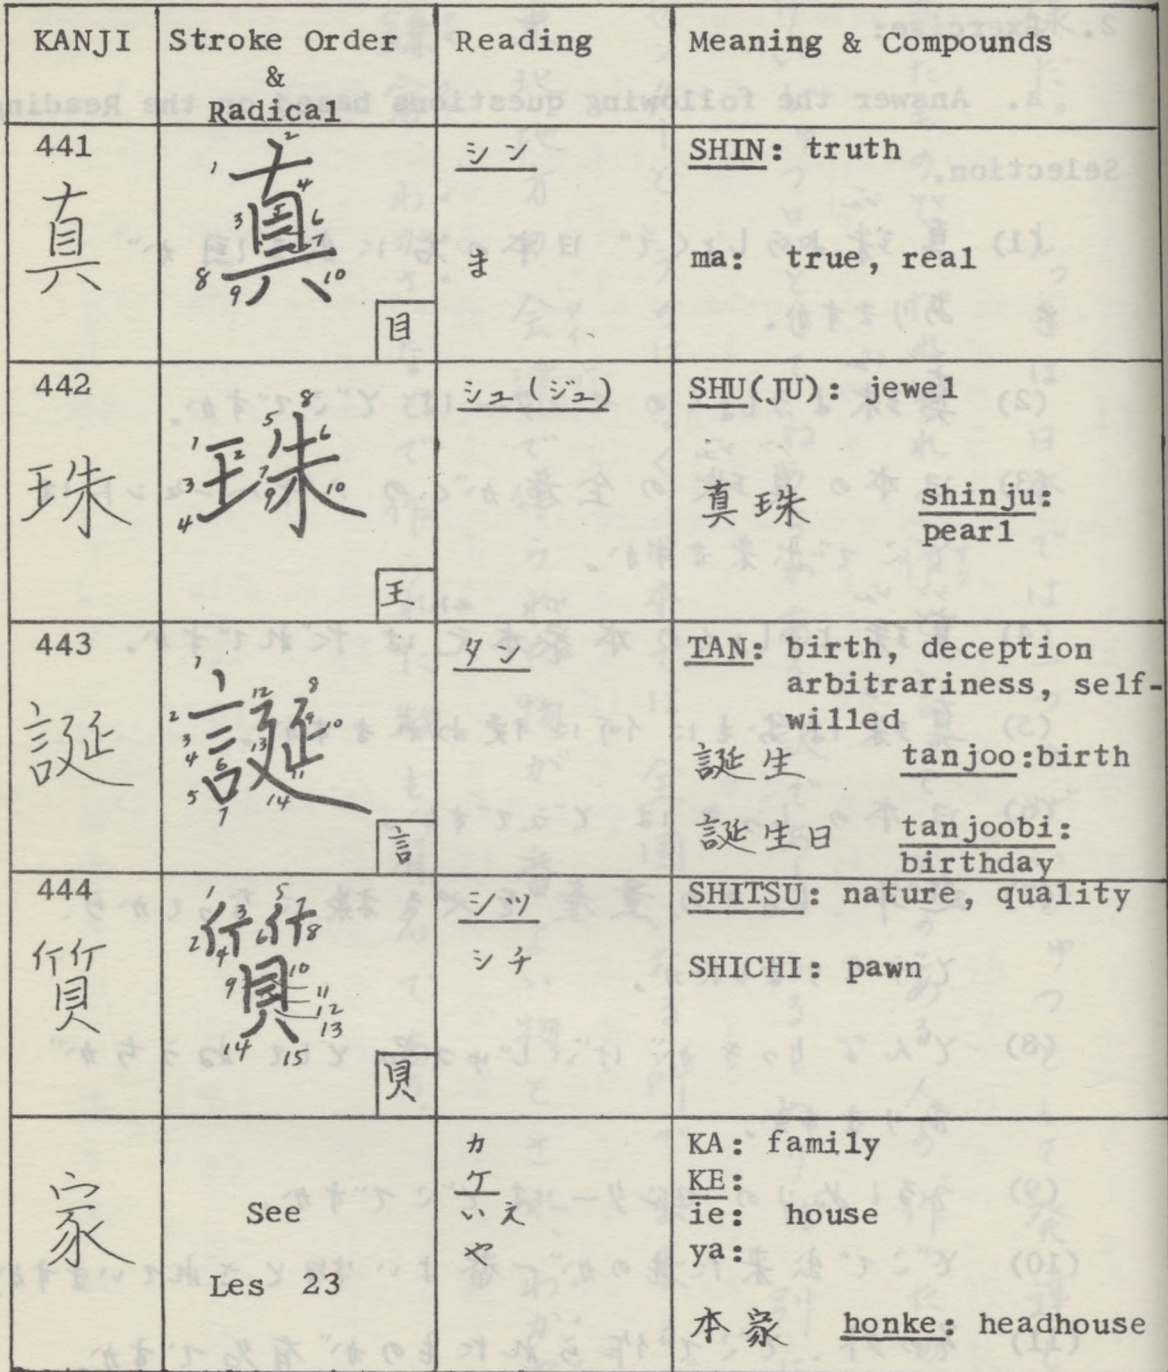 KANJI
Stroke Order
&
Radical
Reading
Meaning & Compounds
441
真
1 2 3 4 5 6 7 8 9 10
真
目
シン
ま
SHIN: truth
ma: true, real
442
珠
1 2 3 4 5 6 7 8 9 10
珠
王
シュ(ジュ)
SHU(JU): jewel
真珠 shinju:
pearl
443
誕
1 2 3 4 5 6 7 8 9 10 11 12 13 14
誕
言
タン
TAN: birth, deception
arbitrariness, self-
willed
誕生 tanjoo:birth
誕生日 tanjoobi:
birthday
444
質
1 2 3 4 5 6 7 8 9 10 11 12 13 14 15
質
貝
シツ
シチ
SHITSU: nature, quality
SHICHI: pawn
家
See
Les 23
カ
ケ
いえ
や
KA: family
KE:
ie: house
ya:
本家 honke: headhouse